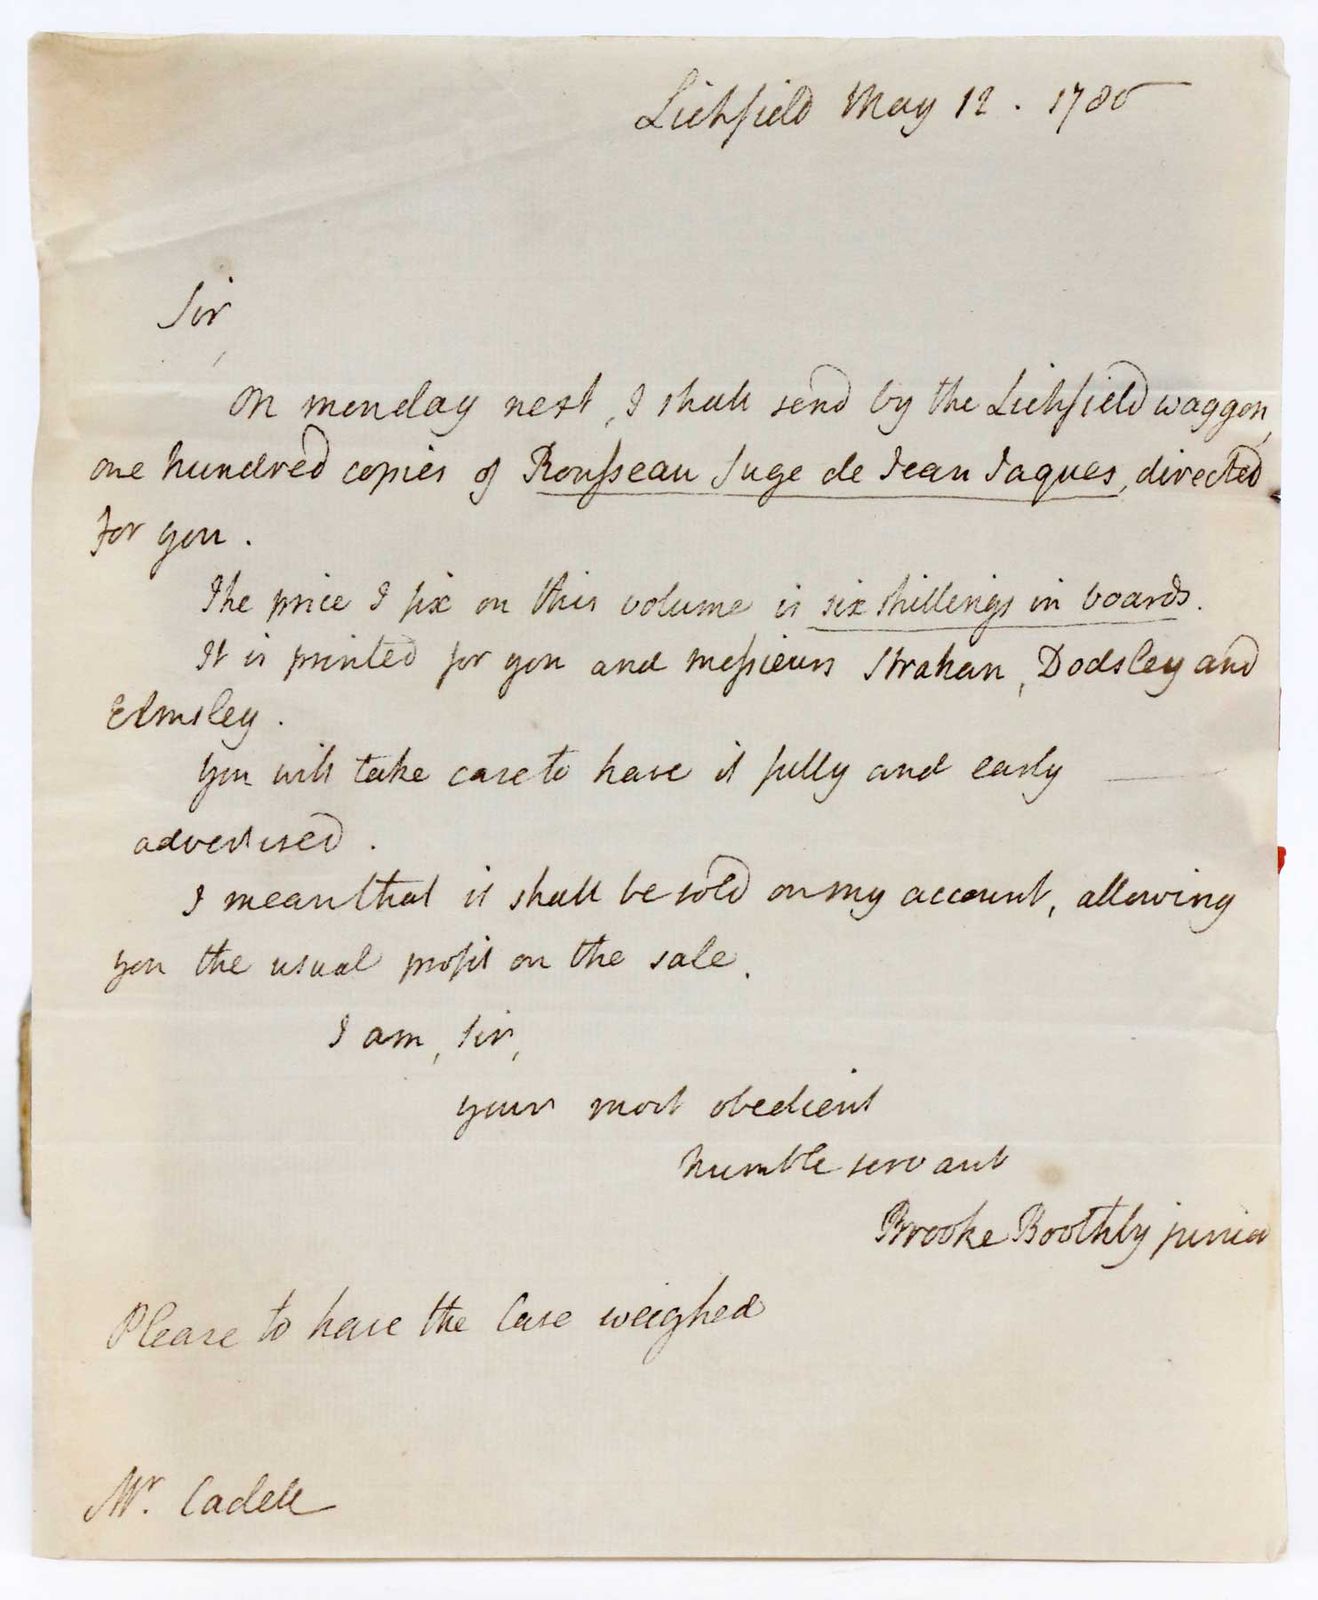 Lichfield May 12. 1780
Sir,
On monday next, I shall send by the Lichfield waggon,
one hundred copies of Rousseau Juge de Jean Jaques, directed
for you.
The price I fix on this volume is six shillings in boards.
It is printed for you and messieurs Strahan, Dodsley and
Elmsley.
you will take care to have it fully and early
advertised.
I mean that it shall be sold on my account, allowing
you the usual profit on the sale.
I am, Sir,
your most obedient
humble servant
Brooke Boothby junior
Please to have the Case weighed
Mr. Cadell